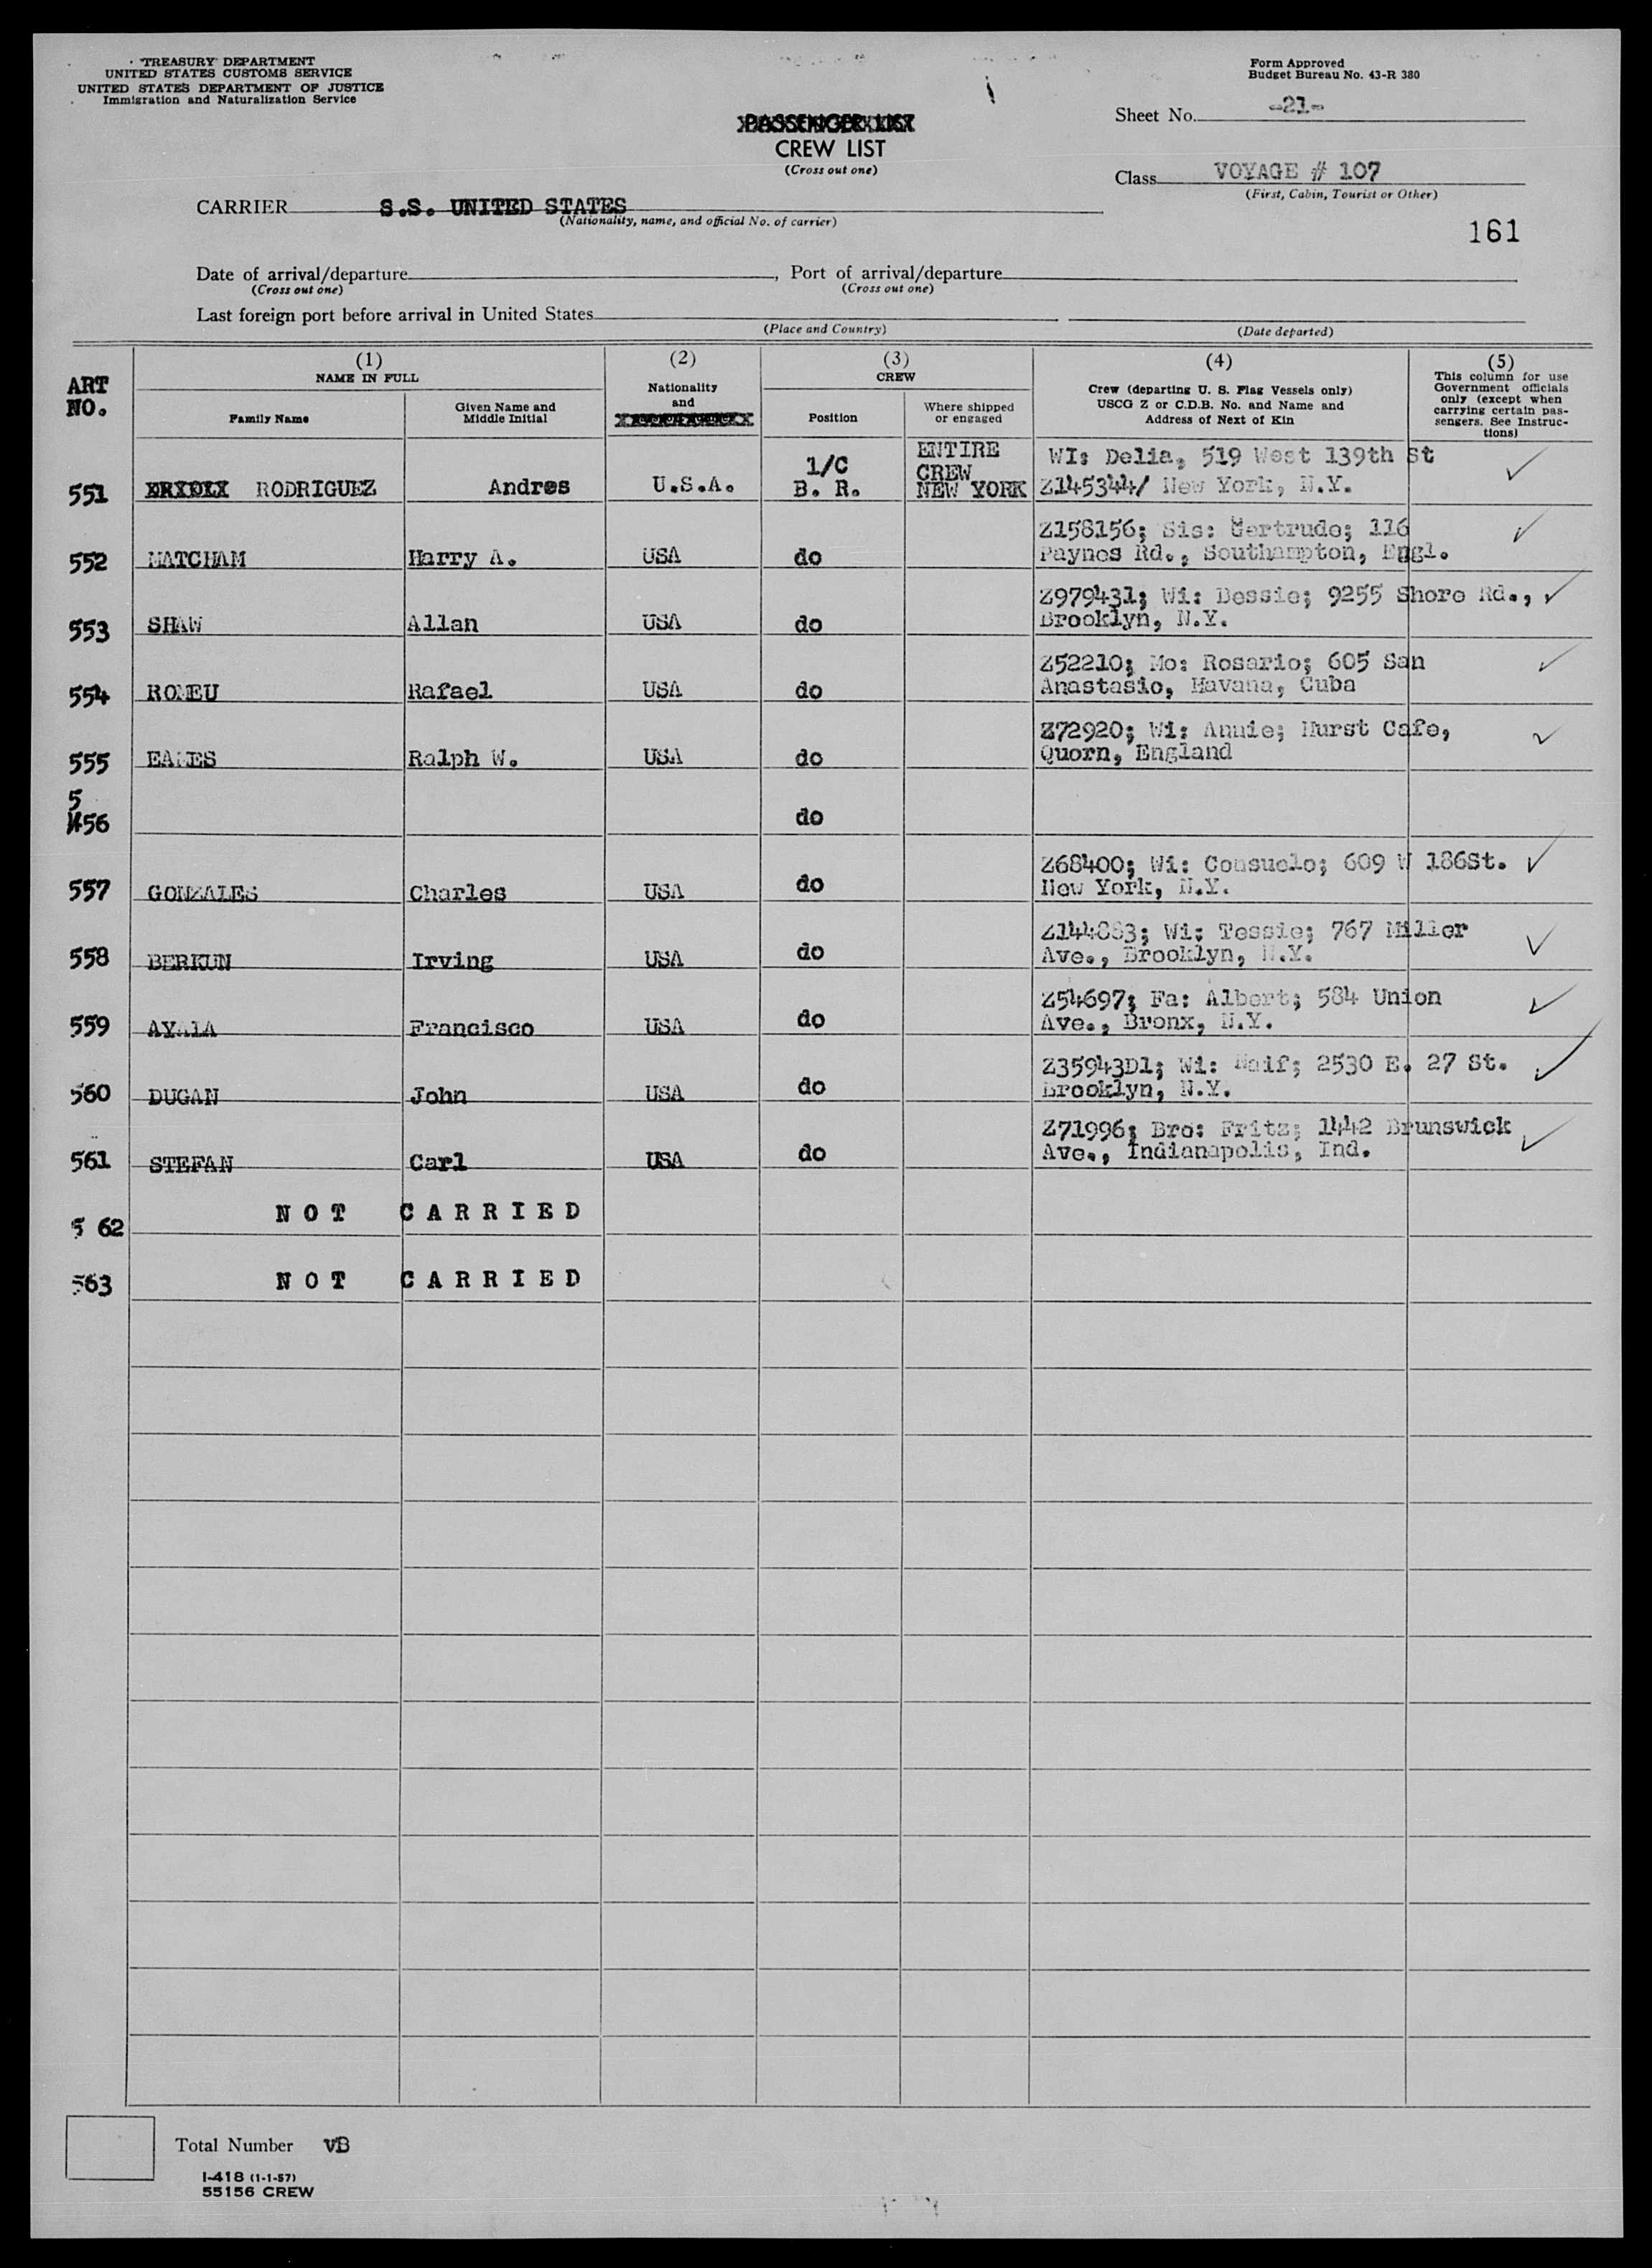 TREASURY DEPARTMENT
UNITED STATES CUSTOMS SERVICE
UNITED STATES DEPARTMENT OF JUSTICE
Immigration and Naturalization Service
Form Approved
Budget Bureau No. 43-R 380
Sheet No. -21-
PASSENGER LIST
CREW LIST
(Cross out one)
Class VOYAGE # 107
(First, Cabin, Tourist or Other)
CARRIER S.S. UNITED STATES
(Nationality, name, and official No. of carrier)
161
Date of arrival/departure , Port of arrival/departure
(Cross out one) (Cross out one)
Last foreign port before arrival in United States
(Place and Country) (Date departed)
ART NO.
(1) NAME IN FULL
Family Name
Given Name and Middle Initial
(2)
Nationality and
(3) CREW
Position
Where shipped or engaged
(4)
Crew (departing U. S. Flag Vessels only)
USCG Z or C.D.B. No. and Name and
Address of Next of Kin
(5)
This column for use
Government officials
only (except when
carrying certain pas-
sengers. See Instruc-
tions)
551 RODRIGUEZ Andres U.S.A. 1/C B. R. ENTIRE CREW NEW YORK WI: Delia, 519 West 139th St
Z145344/ New York, N.Y.
552 MATCHAM Harry A. USA do Z158156; Sis: Gertrude; 116
Paynes Rd., Southampton, Engl.
553 SHAW Allan USA do Z979431; Wi: Bessie; 9255 Shore Rd.,
Brooklyn, N.Y.
554 ROMEU Rafael USA do Z52210; Mo: Rosario; 605 San
Anastasio, Havana, Cuba
555 EAMES Ralph W. USA do Z72920; Wi: Annie; Hurst Cafe,
Quorn, England
5
456 do
557 GONZALES Charles USA do Z68400; Wi: Consuelo; 609 W 186St.
New York, N.Y.
558 BERKUN Irving USA do Wi: Tessie; 767 Miller
Ave., Brooklyn, N.Y.
559 AYALA Francisco USA do Z54697; Fa: Albert; 584 Union
Ave., Bronx, N.Y.
560 DUGAN John USA do Z35943D1; Wi: 2530 E. 27 St.
Brooklyn, N.Y.
561 STEFAN Carl USA do Z71996; Bro: Fritz; 1442 Brunswick
Ave., Indianapolis, Ind.
5 62 NOT CARRIED
563 NOT CARRIED
Total Number VB
I-418 (1-1-57)
55156 CREW